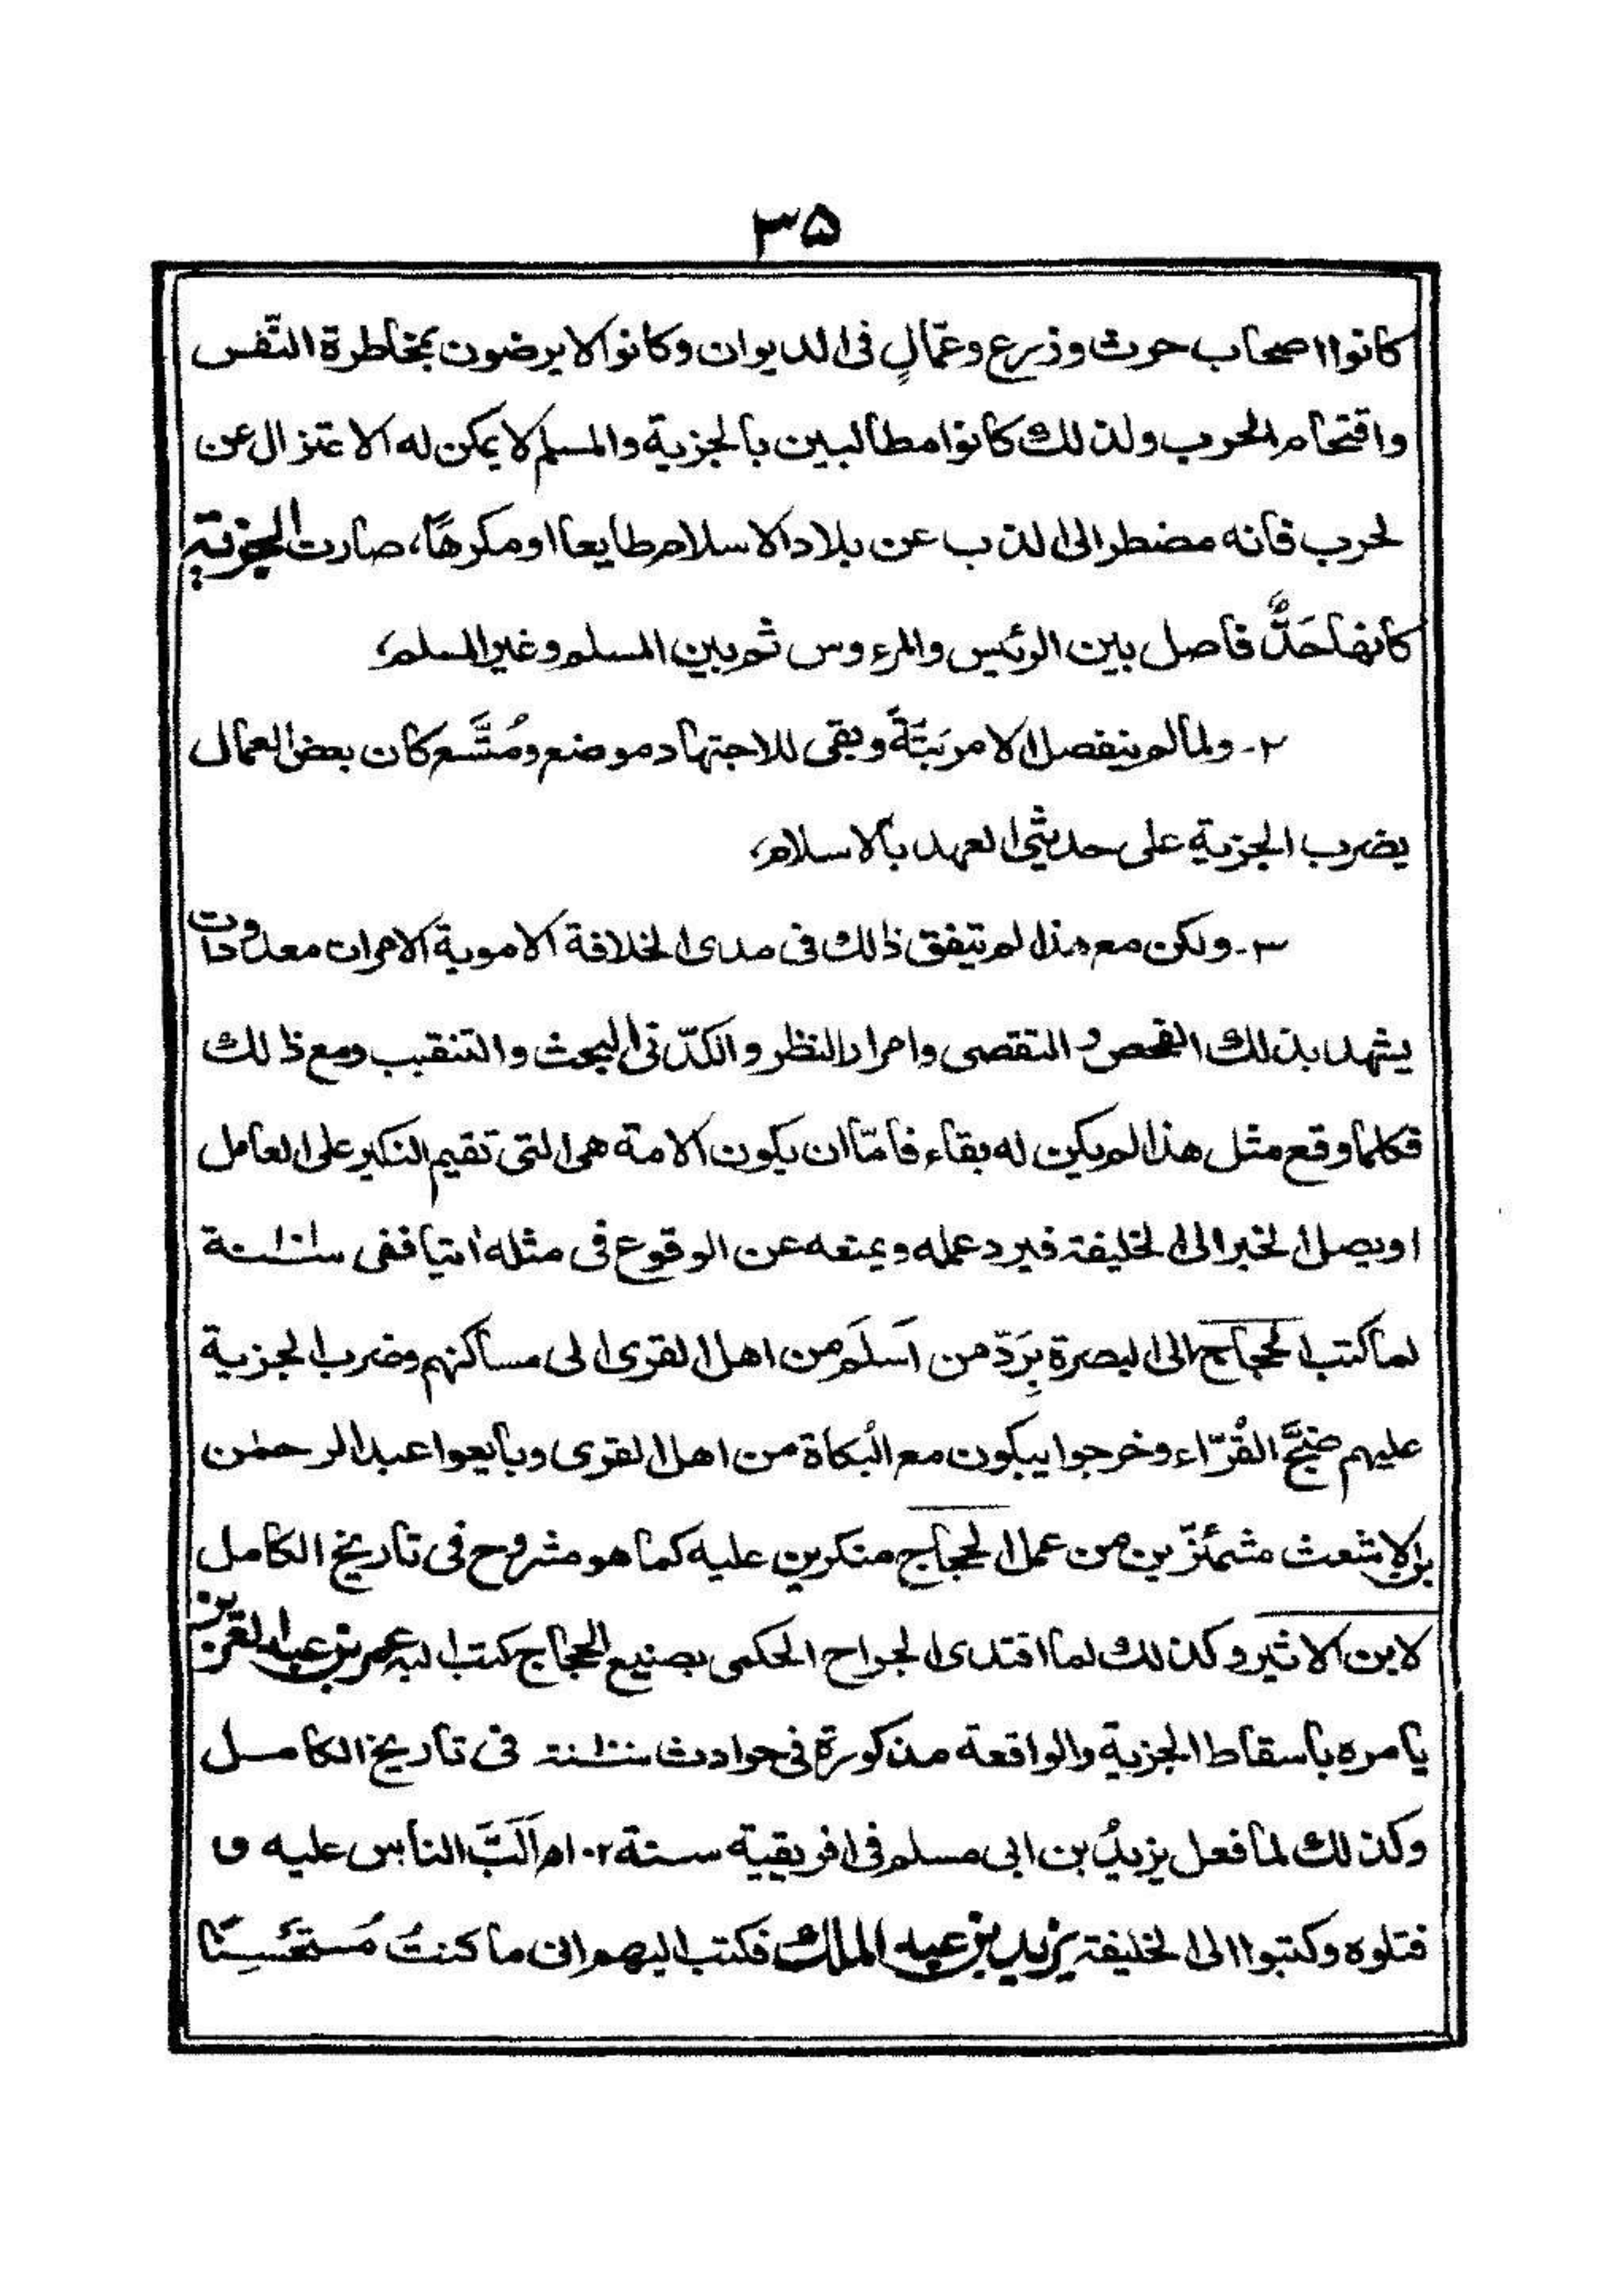 ۳۵
كانوا اصحاب حرث وزرع وعمّالٍ فى الديوان وكانوا لا يرضون بمخاطرة النّفس
واقتحام الحرب ولذلك كانوا مطالبين بالجزية والمسلم لا يمكن له الاعتزال عن
لحرب فانه مضطر الى الذب عن بلاد الاسلام طايعا او مكرهًا، صارت الجزية
كانها حَدٌّ فاصل بين الرئيس والمرءوس ثم بين المسلم وغير المسلم،
۲- ولما لم ينفصل الامر بَتَّةً وبقى للاجتهاد موضع ومُتَّسع كان بعض العمال
يضرب الجزية على حديثى العهد بالاسلام،
۳- ولكن مع هذا لم يتفق ذلك فى مدى الخلافة الاموية الا مرات معدودات
يشهد بذلك الفحص و التقصى وامرار النظر والكدّ فى البحث والتنقيب ومع ذلك
فكلما وقع مثل هذا لم يكن له بقاء فامّا ان يكون الامة هى التى تقيم النكير على العامل
او يصل الخبر الى الخليفة فيرد عمله ويمنعه عن الوقوع فى مثله اتيا ففى سنة
لما كتب الحجاج الى البصرة بِرَدّ من اَسلَم من اهل القرى الى مساكنهم وضرب الجزية
عليهم ضجَّ القُرّاء وخرجوا يبكون مع البُكاة من اهل القرى وبايعوا عبد الرحمٰن
بن الاشعث مشمئزّين من عمل الحجاج منكرين عليه كما هو مشروح فى تاريخ الكامل
لابن الاثير وكذلك لما اقتدى الجراح الحكمى بصنيع الحجاج كتب اليه عمر بن عبد العزيز
يامره باسقاط الجزية والواقعة مذكورة فى حوادث سنة فى تاريخ الكامل
وكذلك لما فعل يزيدُ بن ابى مسلم فى افريقية سنة ۱۰۲م اَلَبَّ الناس عليه و
قتلوه وكتبوا الى الخليفة يزيد بن عبد الملك فكتب اليهم انى ما كنتُ مُستحسِنًا